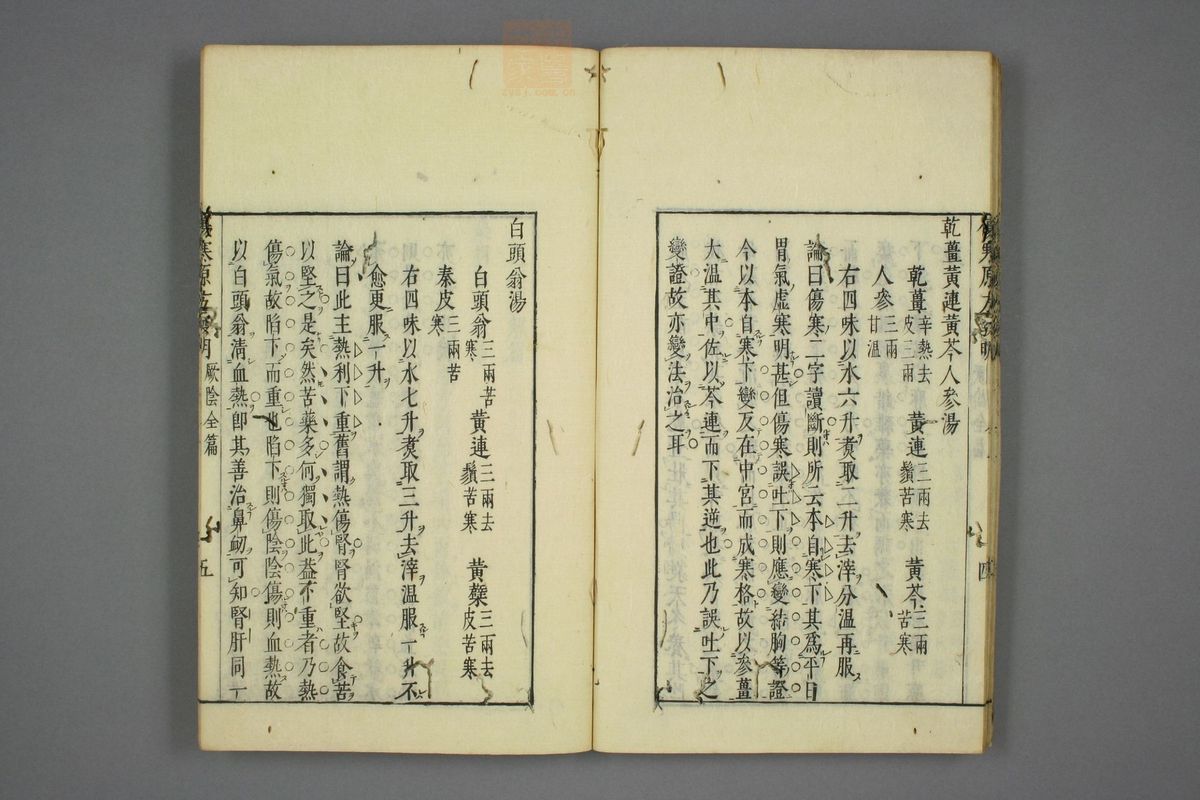 乾薑黃連黃芩人參湯
乾薑辛熱去皮三兩 黃連三兩去鬚苦寒 黃芩三兩苦寒
人參三兩甘溫
右四味以水六升煑取二升去滓分温再服
論曰傷寒二字讀斷則所云本自寒下其爲平日
胃氣虛寒明甚但傷寒誤吐下則應變結胸等證
今以本自寒下變反在中宮而成寒格故以參薑
大温其中佐以芩連而下其逆也此乃誤吐下之
變證故亦變法治之耳
白頭翁湯
白頭翁三兩苦寒 黃連三兩去鬚苦寒 黃蘗三兩去皮苦寒
秦皮三兩苦寒
右四味以水七升煑取三升去滓温服一升不
愈更服一升
論曰此主熱利下重舊謂熱傷腎腎欲堅故食苦
以堅之是矣然苦藥多何獨取此葢下重者乃熱
傷氣故陷下而重也陷下則傷陰陰傷則血熱故
以白頭翁淸血熱卽其善治鼻衂可知腎肝同一
厥陰全篇
五
四
zysj.com.cn